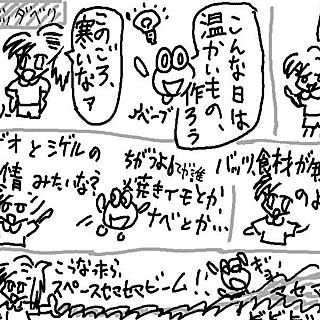 ッダベリ
このごろ、
寒いなァ
こんな日は
温かいもの、
作ろう
ジオとシゲルの
情みたいな?
ちがうよ!で誰
焼きイモとか
ナベとか…
バッツ食材が無
のよ
こうなったら、
スペースセマセマビーム!!
ギョ
セマ